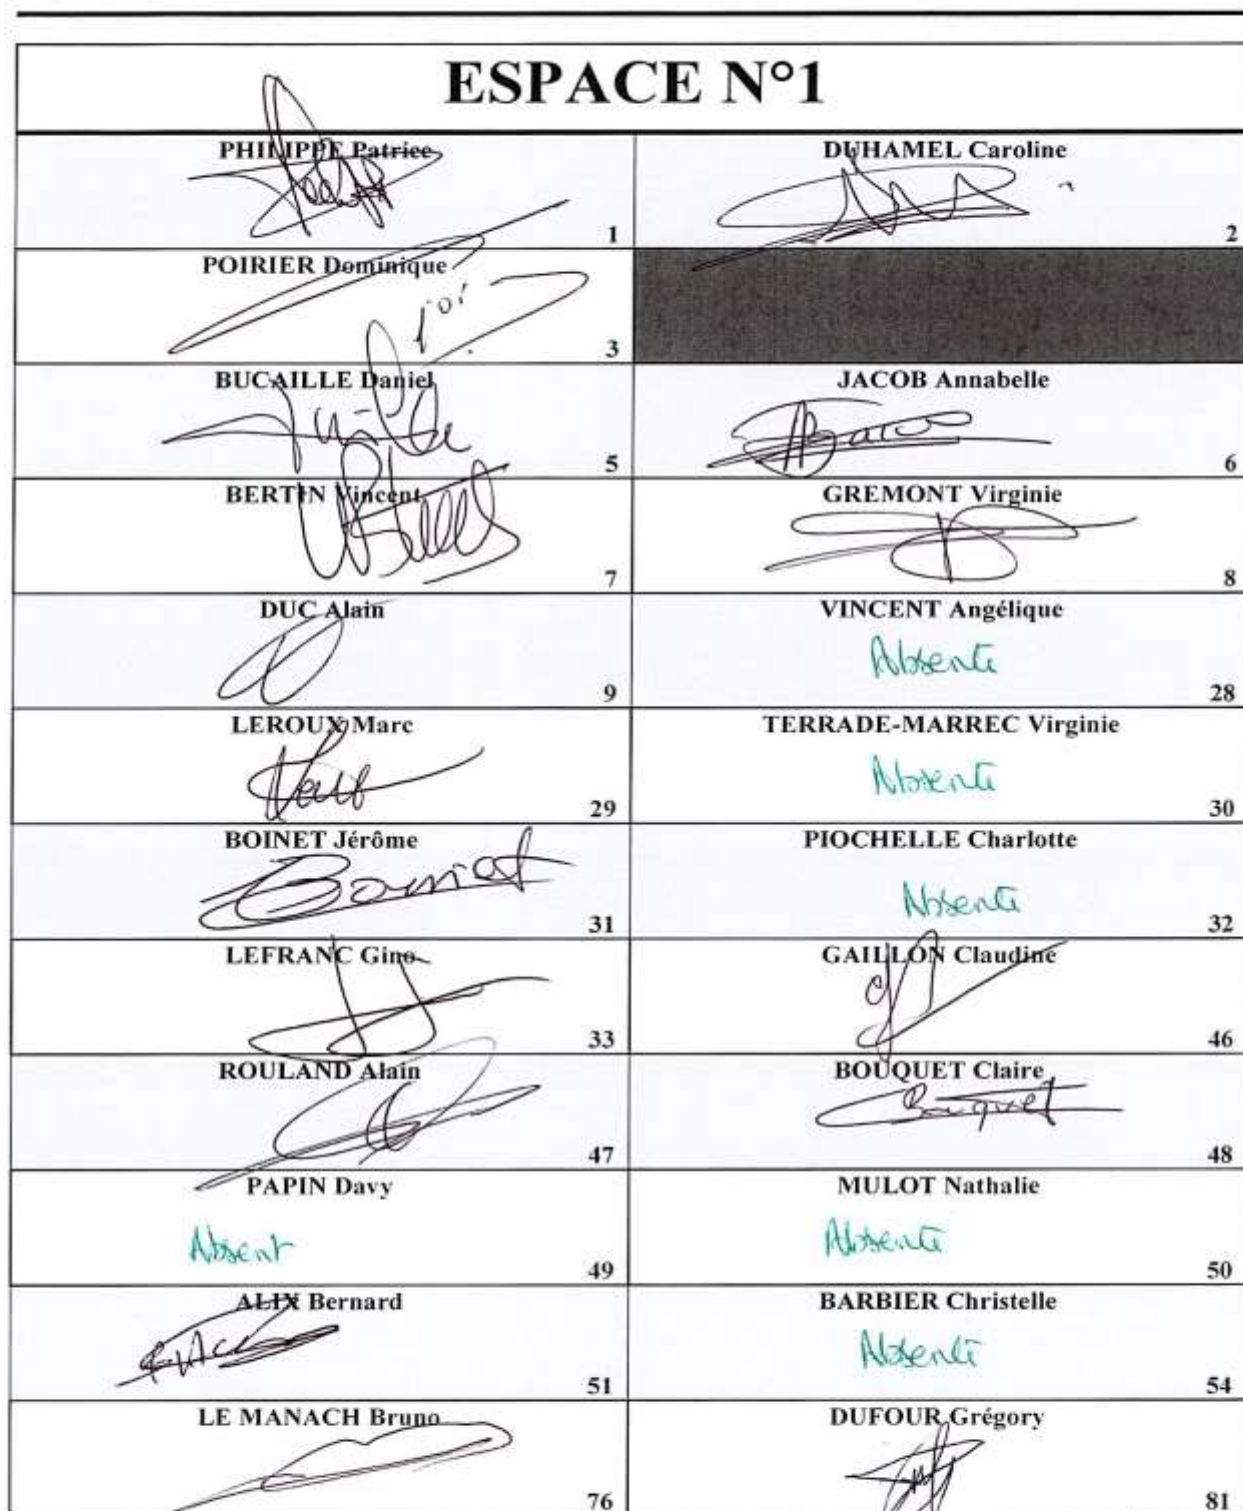 ESPACE N°1
PHILIPPE Patrice
1
DUHAMEL Caroline
2
POIRIER Dominique
3
BUCAILLE Daniel
5
JACOB Annabelle
6
BERTIN Vincent
7
GREMONT Virginie
8
DUC Alain
9
VINCENT Angélique
Absente
28
LEROUX Marc
29
TERRADE-MARREC Virginie
Absente
30
BOINET Jérôme
Boinet
31
PIOCHELLE Charlotte
Absente
32
LEFRANC Gino
33
GAILLON Claudine
46
ROULAND Alain
47
BOUQUET Claire
Bouquet
48
PAPIN Davy
Absent
49
MULOT Nathalie
Absente
50
ALIX Bernard
51
BARBIER Christelle
Absente
54
LE MANACH Bruno
76
DUFOUR Grégory
81